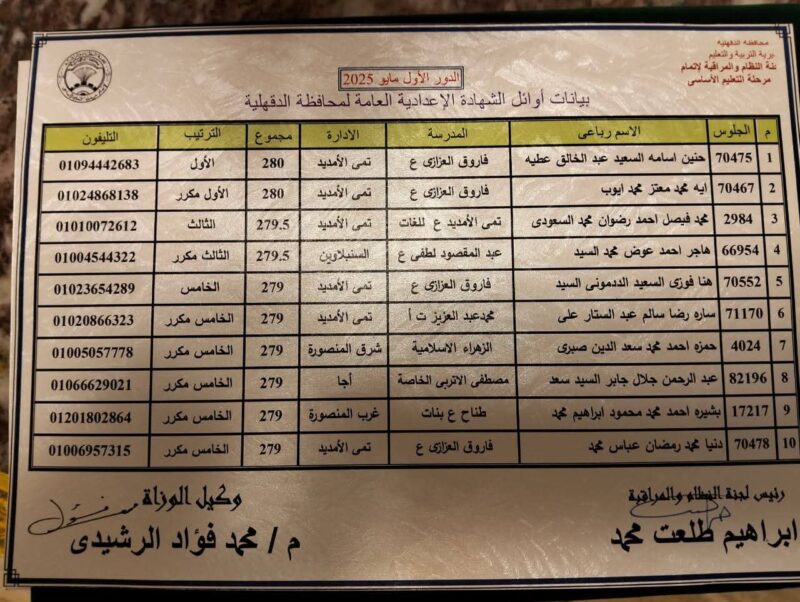 محافظة الدقهلية
يرية التربية والتعليم
نة النظام والمراقبة لإتمام
مرحلة التعليم الأساسى
الدور الأول مايو 2025
بيانات أوائل الشهادة الإعدادية العامة لمحافظة الدقهلية
م الجلوس الاسم رباعى المدرسة الادارة مجموع الترتيب التليفون
1 70475 حنين اسامه السعيد عبد الخالق عطيه فاروق العزازى ع تمى الأمديد 280 الأول 01094442683
2 70467 ايه محمد معتز محمد ايوب فاروق العزازى ع تمى الأمديد 280 الأول مكرر 01024868138
3 2984 محمد فيصل احمد رضوان محمد السعودى تمى الأمديد ع للغات تمى الأمديد 279.5 الثالث 01010072612
4 66954 هاجر احمد عوض محمد السيد عبد المقصود لطفى ع السنبلاوين 279.5 الثالث مكرر 01004544322
5 70552 هنا فوزى السعيد الددمونى السيد فاروق العزازى ع تمى الأمديد 279 الخامس 01023654289
6 71170 ساره رضا سالم عبد الستار على محمدعبد العزيز ت أ تمى الأمديد 279 الخامس مكرر 01020866323
7 4024 حمزه احمد محمد سعد الدين صبرى الزهراء الاسلامية شرق المنصورة 279 الخامس مكرر 01005057778
8 82196 عبد الرحمن جلال جابر السيد سعد مصطفى الاتربى الخاصة أجا 279 الخامس مكرر 01066629021
9 17217 بشيره احمد محمد محمود ابراهيم محمد طناح ع بنات غرب المنصورة 279 الخامس مكرر 01201802864
10 70478 دنيا محمد رمضان عباس محمد فاروق العزازى ع تمى الأمديد 279 الخامس مكرر 01006957315
رئيس لجنة النظام والمراقبة
ابراهيم طلعت محمد
وكيل الوزاة
م / محمد فؤاد الرشيدى